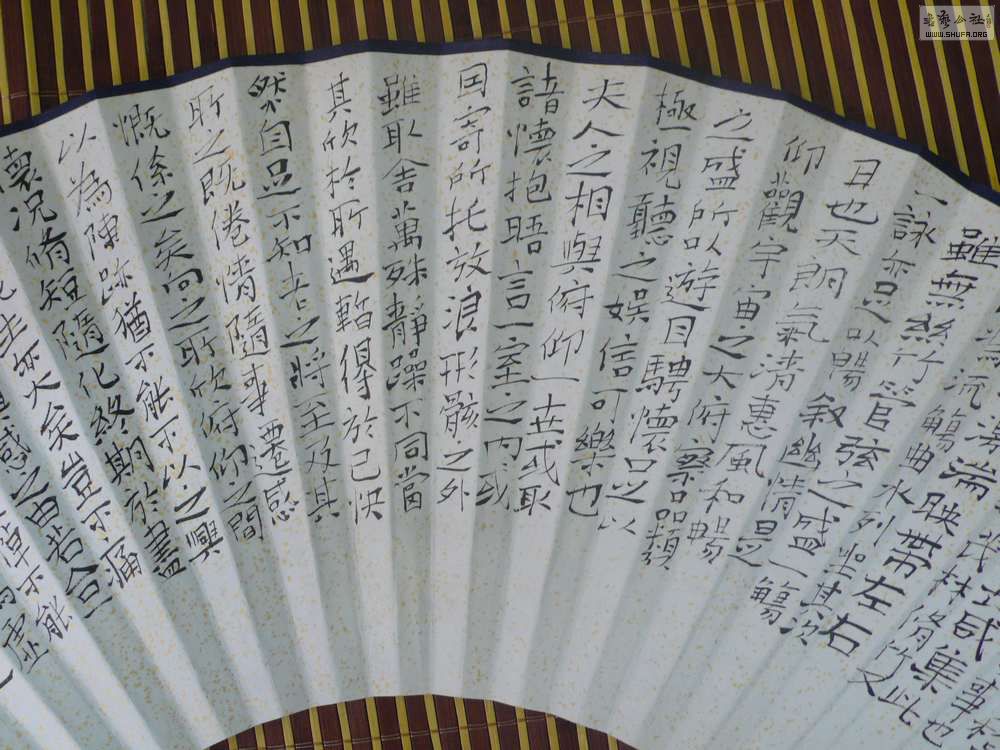 事也
咸集此
茂林修竹又
湍映帶左右
為流觴曲水列坐其次
雖無絲竹管弦之盛一觴
一詠亦足以暢敘幽情是
日也天朗氣清惠風和暢
仰觀宇宙之大俯察品類
之盛所以遊目騁懷足以
極視聽之娛信可樂也
夫人之相與俯仰一世或取
諸懷抱晤言一室之內或
因寄所托放浪形骸之外
雖取舍萬殊靜躁不同當
其欣於所遇暫得於己快
然自足不知老之將至及其
所之既倦情隨事遷感
慨係之矣向之所欣俯仰之間
以為陳跡猶不能不以之興
懷況脩短隨化終期於盡
死生亦大矣豈不痛
感之由若合一
悼不能
為虛
書藝公社
WWW.SHUFA.ORG